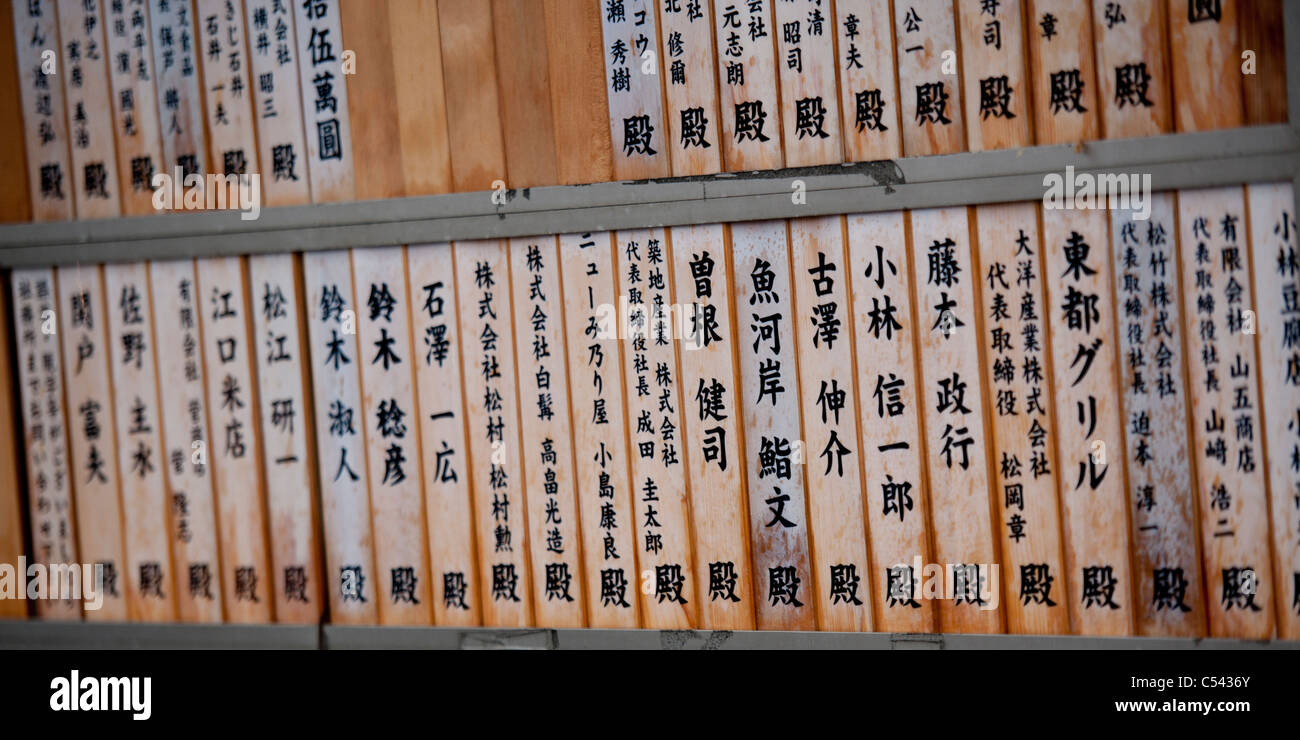 圓
弘 殿
章 殿
寿司 殿
公一 殿
章夫 殿
清
昭司 殿
元志朗 殿
修爾 殿
瀬 秀樹 殿
拾伍萬圓
株式会社
横井 昭三 殿
石井 一夫 殿
殿
國光 殿
実 義治 殿
渡辺 弘 殿
小林豆腐店
有限会社 山五商店
代表取締役社長 山﨑 浩二 殿
松竹株式会社
代表取締役社長 迫本 淳一 殿
東都グリル 殿
大洋産業株式会社
代表取締役 松岡章 殿
藤本 政行 殿
小林 信一郎 殿
古澤 伸介 殿
魚河岸 鮨文 殿
曽根 健司 殿
築地産業 株式会社
代表取締役社長 成田 圭太郎 殿
ニューみ乃り屋 小島康良 殿
株式会社白髯 高畠光造 殿
株式会社松村 松村勲 殿
石澤 一広 殿
鈴木 稔彦 殿
鈴木 淑人 殿
松江 研一 殿
江口米店 殿
有限会社 菅 隆志 殿
佐野 主水 殿
関戸 富夫 殿
alamy
Image ID: C5436Y
www.alamy.com